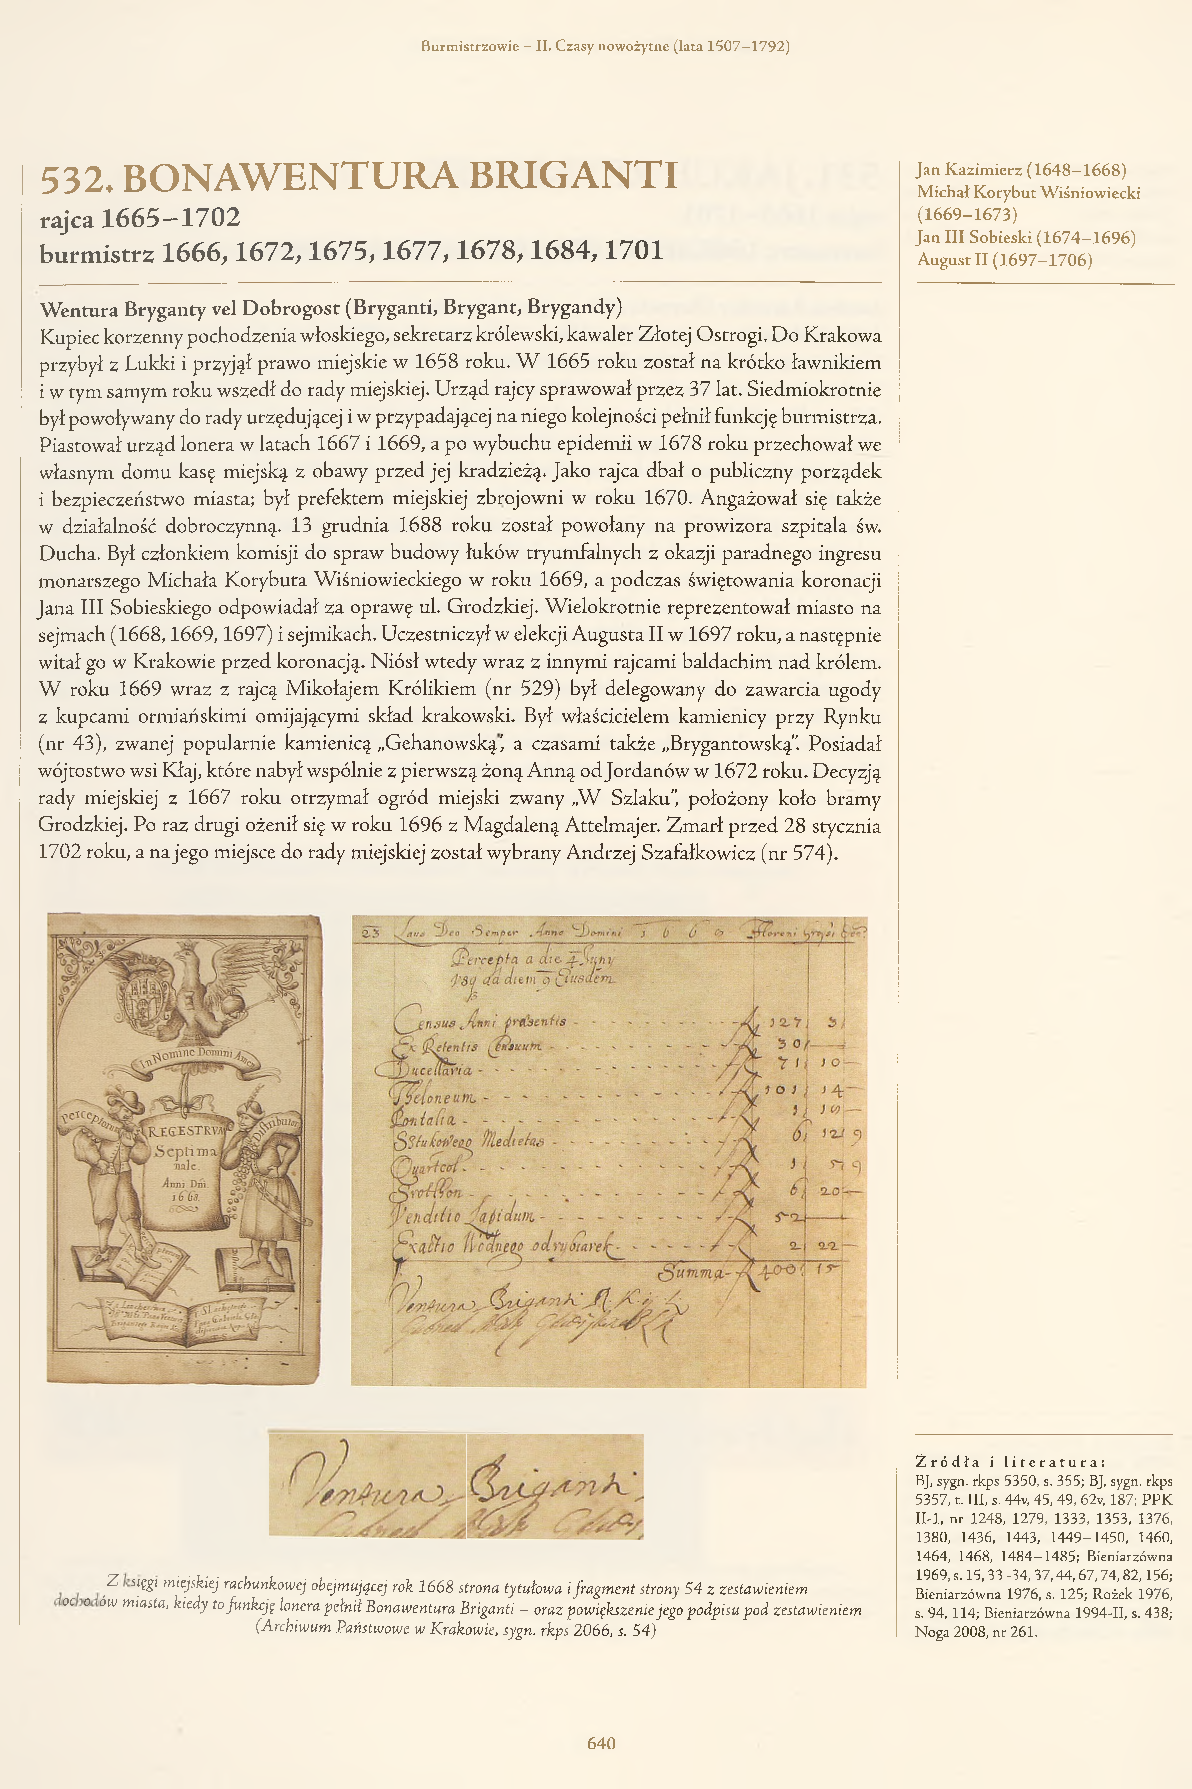 Burmistrzowie – II. Czasy nowożytne (lata 1507–1792)
532. BONAWENTURA BRIGANTI
rajca 1665–1702
burmistrz 1666, 1672, 1675, 1677, 1678, 1684, 1701
Jan Kazimierz (1648–1668)
Michał Korybut Wiśniowiecki
(1669–1673)
Jan III Sobieski (1674–1696)
August II (1697–1706)
Wentura Bryganty vel Dobrogost (Bryganti, Brygant, Brygandy)
Kupiec korzenny pochodzenia włoskiego, sekretarz królewski, kawaler Złotej Ostrogi. Do Krakowa
przybył z Lukki i przyjął prawo miejskie w 1658 roku. W 1665 roku został na krótko ławnikiem
i w tym samym roku wszedł do rady miejskiej. Urząd rajcy sprawował przez 37 lat. Siedmiokrotnie
był powoływany do rady urzędującej i w przypadającej na niego kolejności pełnił funkcję burmistrza.
Piastował urząd lonera w latach 1667 i 1669, a po wybuchu epidemii w 1678 roku przechował we
własnym domu kasę miejską z obawy przed jej kradzieżą. Jako rajca dbał o publiczny porządek
i bezpieczeństwo miasta; był prefektem miejskiej zbrojowni w roku 1670. Angażował się także
w działalność dobroczynną. 13 grudnia 1688 roku został powołany na prowizora szpitala św.
Ducha. Był członkiem komisji do spraw budowy łuków tryumfalnych z okazji paradnego ingresu
monarszego Michała Korybuta Wiśniowieckiego w roku 1669, a podczas świętowania koronacji
Jana III Sobieskiego odpowiadał za oprawę ul. Grodzkiej. Wielokrotnie reprezentował miasto na
sejmach (1668, 1669, 1697) i sejmikach. Uczestniczył w elekcji Augusta II w 1697 roku, a następnie
witał go w Krakowie przed koronacją. Niósł wtedy wraz z innymi rajcami baldachim nad królem.
W roku 1669 wraz z rajcą Mikołajem Królikiem (nr 529) był delegowany do zawarcia ugody
z kupcami ormiańskimi omijającymi skład krakowski. Był właścicielem kamienicy przy Rynku
(nr 43), zwanej popularnie kamienicą „Gehanowską”, a czasami także „Brygantowską”. Posiadał
wójtostwo wsi Kłaj, które nabył wspólnie z pierwszą żoną Anną od Jordanów w 1672 roku. Decyzją
rady miejskiej z 1667 roku otrzymał ogród miejski zwany „W Szlaku”, położony koło bramy
Grodzkiej. Po raz drugi ożenił się w roku 1696 z Magdaleną Attelmajer. Zmarł przed 28 stycznia
1702 roku, a na jego miejsce do rady miejskiej został wybrany Andrzej Szafałkowicz (nr 574).
In Nomine Domini Amen
Perceptorum
Distributor
REGESTRVM
Septima
nale.
Anni Dni
1668.
23 Laus Deo Semper Anno Domini 1 6 6 Floreni
Percepta a die 4 Juny
ad diem 9 Eiusdem
Census Anni praesentis 127 3
Ex Retentis Censuum 30
Ducellaria 71 10
Theloneum 101 14
Pontalia 1 19
Sztukowego Medietas 6 12 9
Quartcol 1 5 9
Brothon 6 20
Venditio Lapidum 52
Exactio Wodnego od rybiarek 2 22
Summa 400 15
Ventura Briganti
Ventura Briganti
Z księgi miejskiej rachunkowej obejmującej rok 1668 strona tytułowa i fragment strony 54 z zestawieniem
dochodów miasta, kiedy to funkcję lonera pełnił Bonawentura Briganti – oraz powiększenie jego podpisu pod zestawieniem
(Archiwum Państwowe w Krakowie, sygn. rkps 2066, s. 54)
Źródła i literatura:
BJ, sygn. rkps 5350, s. 355; BJ, sygn. rkps
5357, t. III, s. 44v, 45, 49, 62v, 187; PPK
II-1, nr 1248, 1279, 1333, 1353, 1376,
1380, 1436, 1443, 1449–1450, 1460,
1464, 1468, 1484–1485; Bieniarzówna
1969, s. 15, 33–34, 37, 44, 67, 74, 82, 156;
Bieniarzówna 1976, s. 125; Rożek 1976,
s. 94, 114; Bieniarzówna 1994-II, s. 438;
Noga 2008, nr 261.
640